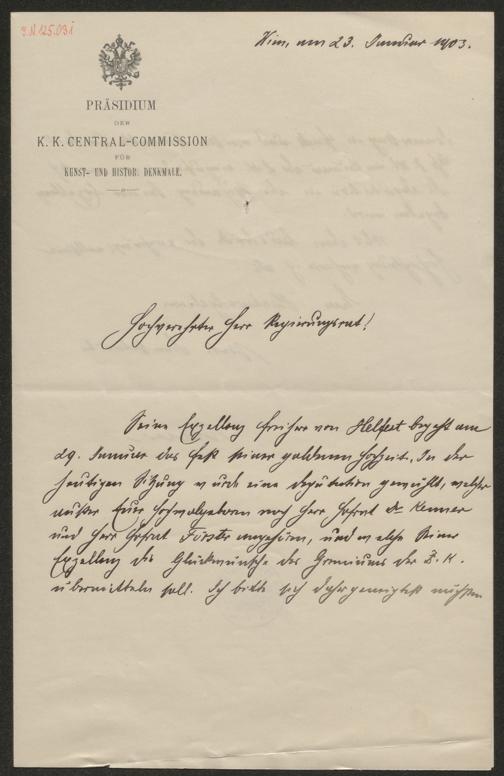 I.N. 125.031
Wien, am 23. Januar 1903.
PRÄSIDIUM
DER
K. K. CENTRAL-COMMISSION
FÜR
KUNST- UND HISTOR. DENKMALE.
Hochverehrter Herr Regierungsrat!
Seine Exzellenz Freiherr von Helfert begeht am
29. Januar das Fest seiner goldenen Hochzeit. In der
heutigen Sitzung wurde eine Deputation gewählt, welcher
außer Euer Hochwolgeboren noch Herr Hofrat Dr. Kenner
und Herr Hofrat Förster angehören, und welche Seiner
Exzellenz die Glückwünsche des Gremiums der Z. K.
übermitteln soll. Ich bitte sich daher geneigtest